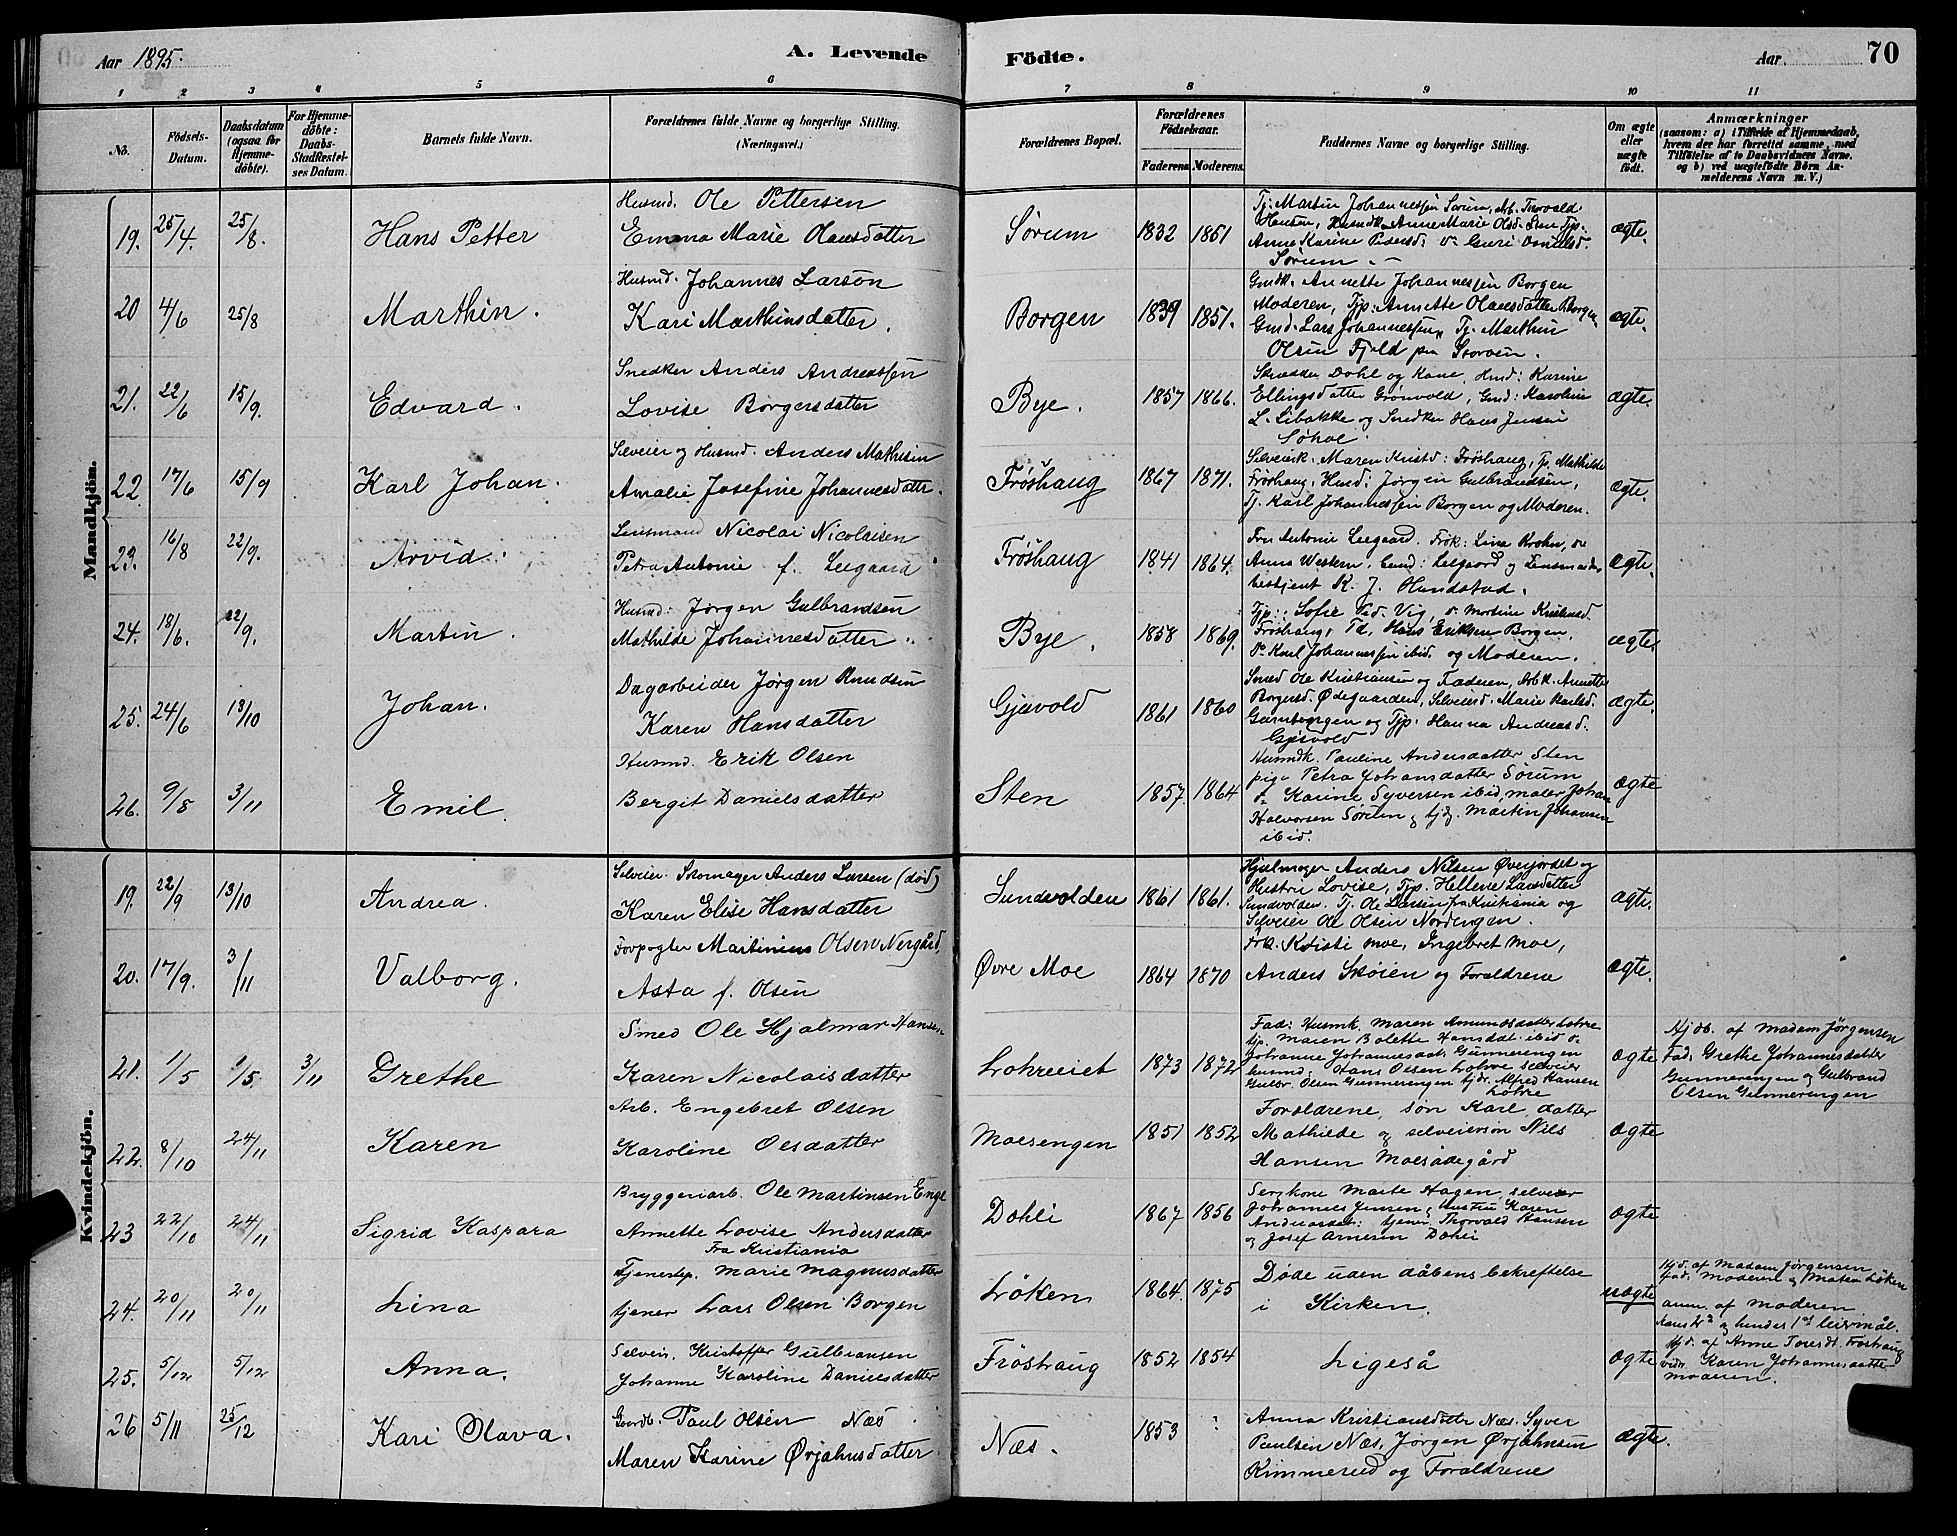 Aar 1895.
A. Levende
Födte.
Aar
70
1 2 3 4 5 6 7 8 9 10 11
No.
Födsels-Datum.
Daabsdatum (ogsaa for Hjemme-döbte).
For Hjemme-döbte: Daabs-Stadfæstel-ses Datum.
Barnets fulde Navn.
Forældrenes fulde Navne og borgerlige Stilling. (Næringsvei.)
Forældrenes Bopæl.
Forældrenes Födselsaar.
Faderens Moderens
Faddernes Navne og borgerlige Stilling.
Om ægte eller uægte födt.
Anmærkninger
(saasom: a) i Tilfælde af Hjemmedaab, hvem der har forrettet samme, med Tilföielse af to Daabsvidners Navne, og b) ved uægtefödte Börn An-melderens Navn m. V.)
Mandkjön.
19. 25/4. 25/8. Hans Petter
Husmd. Ole Pettersen
Emma Marie Hansdatter
Sørum 1832 1851
Tj: Martin Johannessen Sørum, Arb. Thorvald
Hansen, Husmdk. Anne Marie Olsd. Sten Tjp.
Anne Karine Pedersd. Guri
Sørum
ægte.
20 4/6 25/8 Marthin.
Husmd. Johannes Larsøn
Kari Marthinsdatter.
Borgen 1839 1851.
Gmdk. Annette Johannessen Borgen
Moderen, Tjp: Annette Olausdatter Borgen
Gmd. Lars Johannessen, Tj. Marthin
Olsen Fjeld paa
ægte.
21. 22/6 15/9. Edvard.
Snedker Anders Andreassen
Lovise Borgersdatter
Bye. 1857 1866.
Skrædder Dohl og Kone, Hmd: Karine
Ellingsdatter Grønvold, Gmd: Karoline
L. Libakke og Snedker Hans Jensen
ægte.
22. 17/6 15/9 Karl Johan.
Selveier og Husmd. Anders Mathisen
Amalie Josefine Johannesdatter.
Frøshaug 1867 1871.
Selveierk. Maren Kristd: Frøshaug, Tj. Mathilde
Frøshaug, Husmd: Jørgen Gulbrandsen,
Tj. Karl Johannessen Borgen og Moderen.
ægte.
23. 16/8 22/9. Arvid.
Lensmand Nicolai Nicolaisen
Petra Antonie f. Leegaard
Frøshaug 1841 1864.
Fru Antonie Leegaard. Frøk: Lina Krohn, do
Anna Western, Cand: Leegaard og Lensmands
betjent K. J. Hundstad.
ægte.
24. 18/6. 22/9. Martin.
Husmd: Jørgen Gulbrandsen
Mathilde Johannesdatter.
Bye. 1858 1869.
Tjp: Sofie Ped. Vig,
Frøshaug, Hans Eriksen Borgen,
Do Karl Johannessen ibid. og Moderen.
ægte.
25. 24/6 13/10 Johan.
Dagarbeider Jørgen Knudsen
Karen Hansdatter
Gjesvold 1861 1860
Smed Ole Kristiansen og Faderen, Arb.k. Annette
Borgersd. Ødegaarden, Selveierd. Marie Karlsd.
og Tjp: Hanna Andreasd.
Gjesvold
ægte.
26. 9/5 3/11 Emil.
Husmd. Erik Olsen
Bergit Danielsdatter
Sten 1857 1864
Husmdk. Pauline Andersdatter Sten
pige Petra Johansdatter Sørum
do Karine Syversen ibid, maler Johan
Halvorsen Sørum og tjg. Martin Johansen
ibid.
ægte
Kvindekjön.
19. 22/9 13/10 Andrea.
Selveier. Skomager Anders Larsen (død)
Karen Elise Hansdatter
Sundvolden 1861 1861.
Hjulmager Anders Nilsen Øverjordet og
Hustru Lovise, Tjp. Hellene Larsdatter
Sundvolden. Tj. Ole Larsen fra Kristiania og
Selveier Ole Olsen Nordengen.
ægte.
20. 17/9. 3/11 Valborg.
Forpagter Martinius Olsen Nergård,
Asta f. Olsen
Øvre Moe 1864 1870
Frk. Kristi Moe, Ingebret Moe,
Anders Skøien og Forældrene
ægte.
21. 1/5 1/5 3/11 Grethe
Smed Ole Hjalmar Hansen
Karen Nicolaisdatter
Lohreeiet 1873 1872
Fad: Husmk. Maren Amundsdatter Lohre
tjp. Maren Bolette Hansdat. ibid do
Johanne Johannesdat. Gunnerengen
husmd: Hans Olsen Lohre selveier
Gulbr. Olsen Gunnerengen tjdr. Alfred Hansen
Lohre
ægte
Hjdb. af Madam Jørgensen
Fad. Grethe Johannesdatter
Gunnerengen og Gulbrand
Olsen Gunnerengen
22. 8/10 24/11 Karen
Arb. Engebret Olsen
Karoline Olsdatter
Moesengen 1851 1852
Forældrene, søn Karl, datter
Mathilde og selveiersøn Nils
Hansen Moesødegård
ægte
23 22/10 24/11 Sigrid Kaspara
Bryggeriarb. Ole Martinsen Enge
Annette Lovise Andersdatter
Fra Kristiania
Dohli 1867 1856
Marte Hagen, selveier
Johannes Jensen, Hustru Karen
Andreasdat: tjener Thorvald Hansen
og Josef Arnesen Dohli
ægte
24. 20/11 20/11 Lina
Tjenestep. Marie Magnusdatter
tjener Lars Olsen Borgen
Løken 1864. 1875
Døde uden dåbens bekreftelse
i Kirken.
uægte
Hjd. af Madam Jørgensen
fad. Moderen og Mater Løken
anm. af Moderen.
hans 2d og hendes 1st leiermål.
25. 5/12 5/12 Anna.
Selveier. Kristoffer Gulbransen
Johanne Karoline Danielsdatter
Frøshaug 1852 1854
Ligeså
ægte
Hjd. af Anne Toresdt. Frøshaug
vidn. Karen Johannesdatter
Moderen.
26 5/11 25/12 Kari Olava.
Gaardb. Paul Olsen Næs
Maren Karine Ørjahnsdatter
Næs. 1853
Anna Kristiansdatter Næs. Syver
Paulsen Næs, Jørgen Ørjahnsen
Kimmerud og Forældrene
ægte.